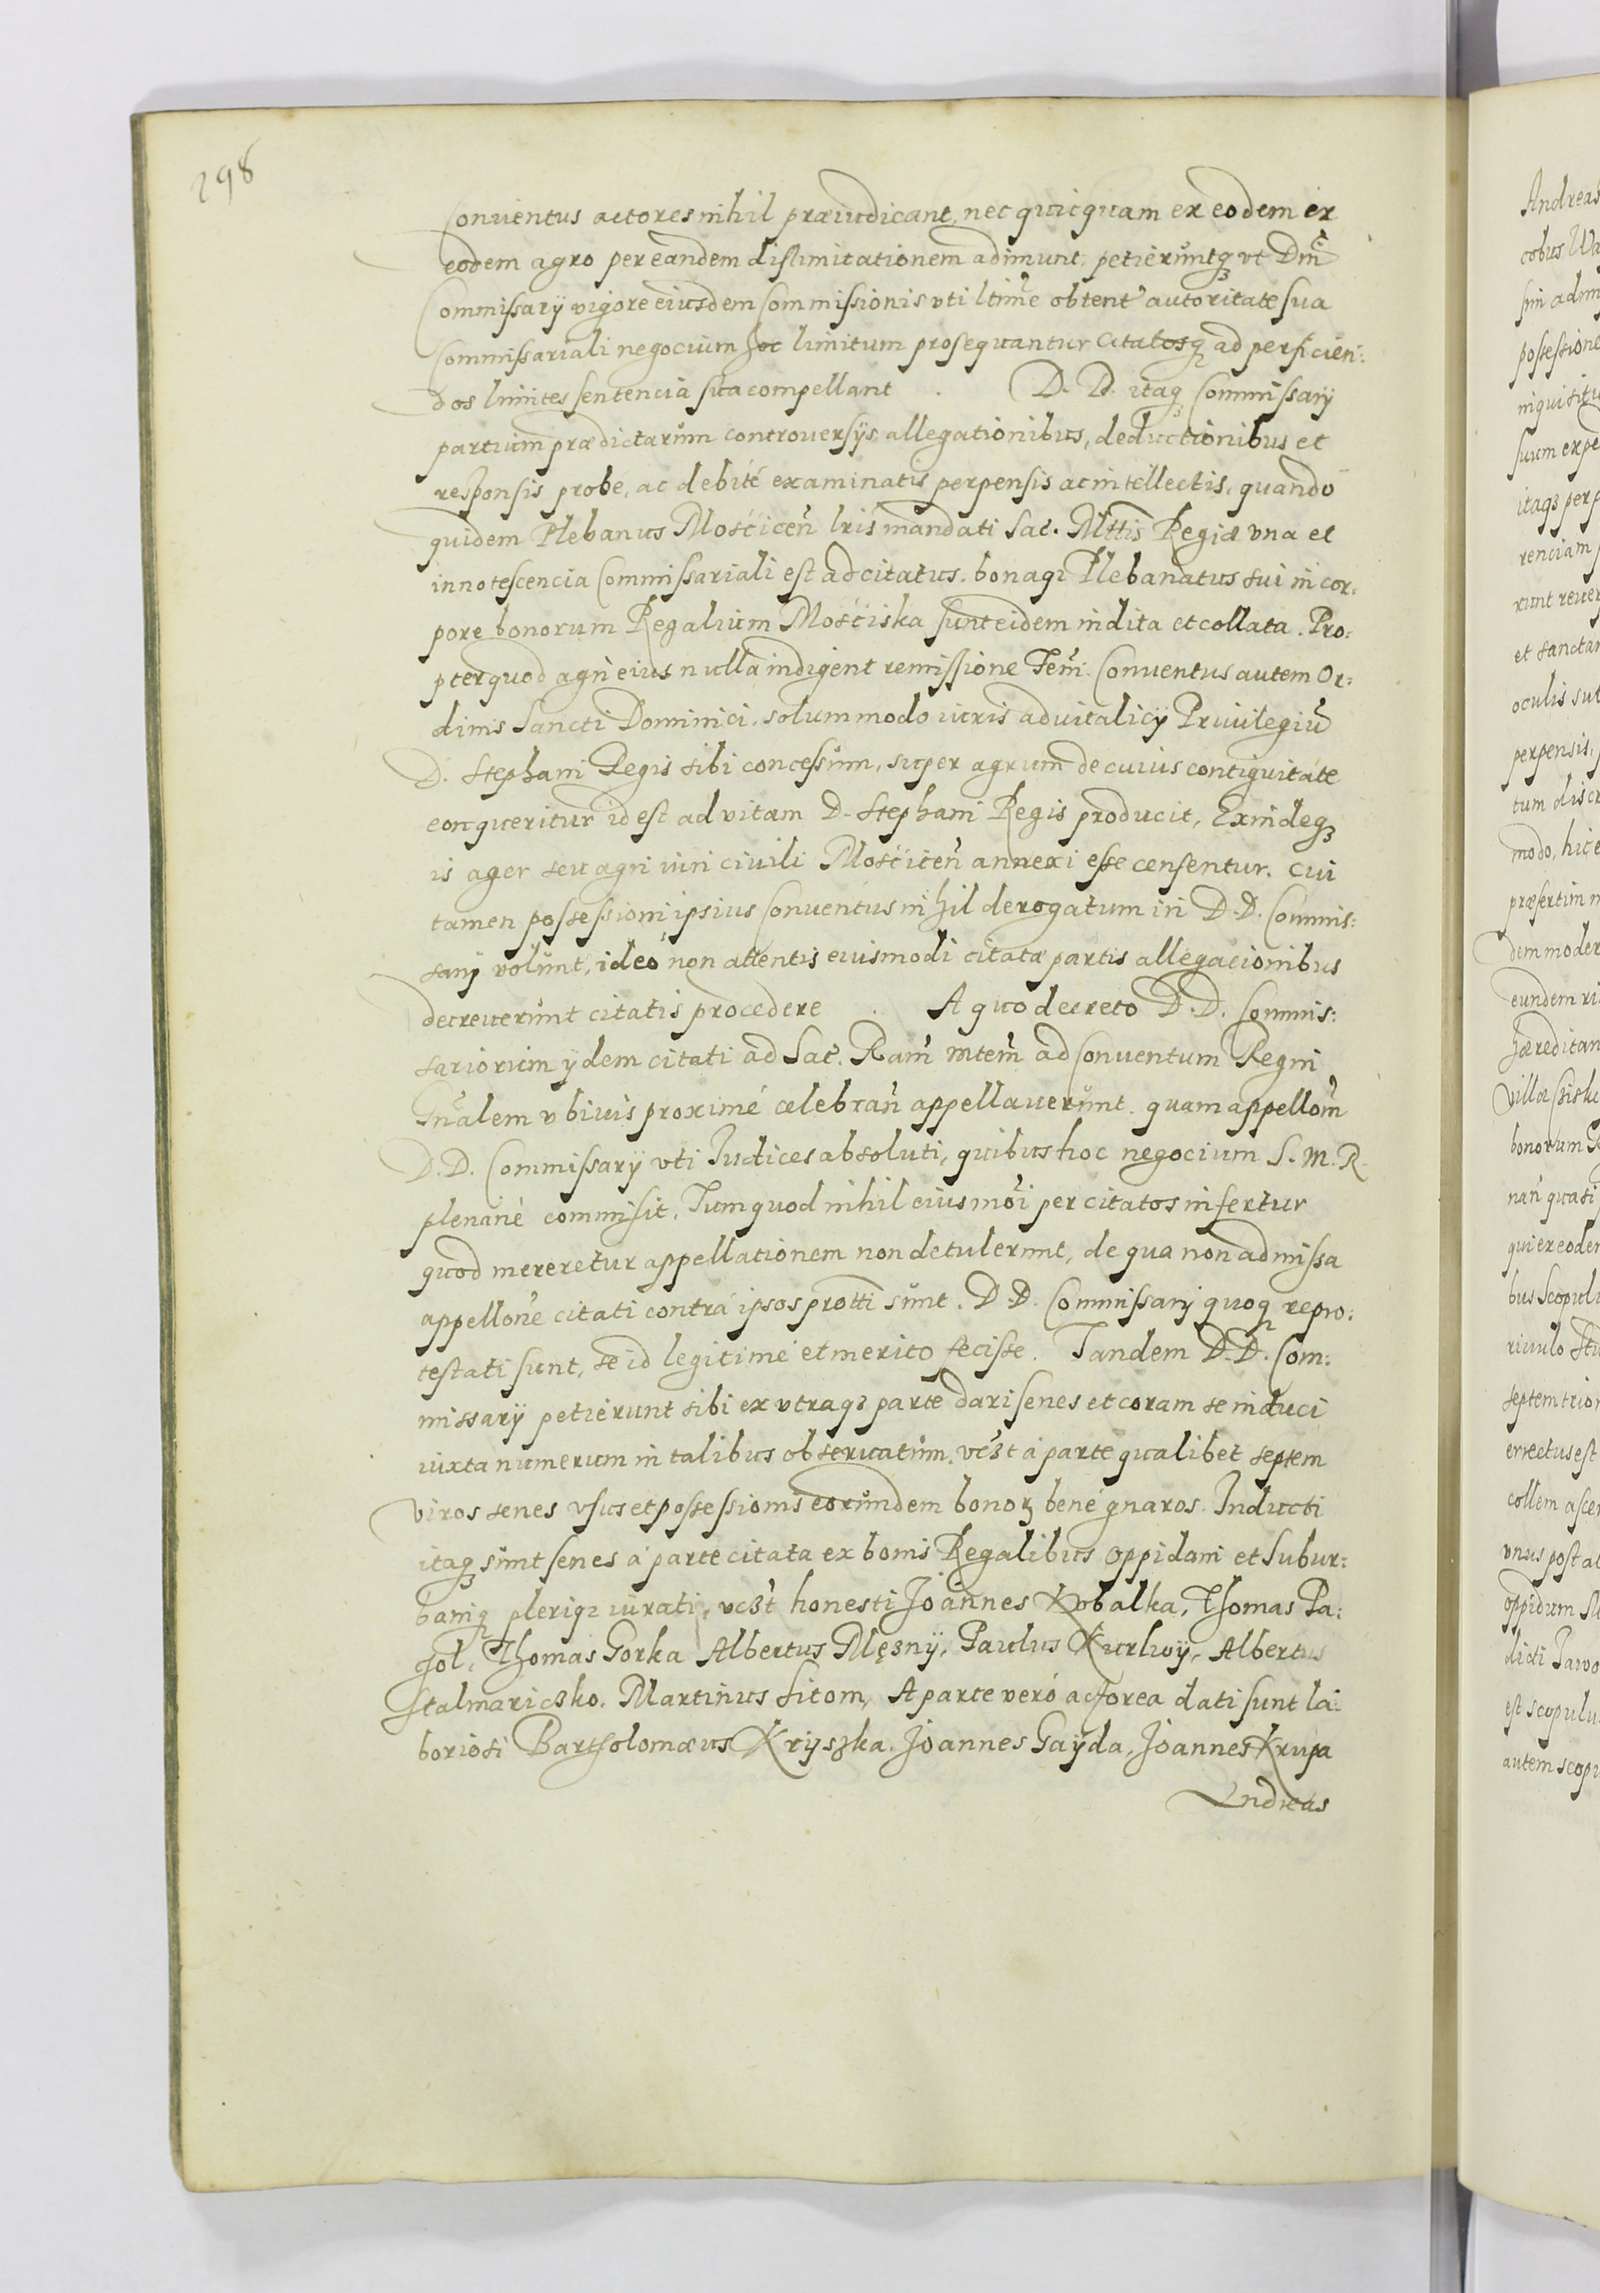 298
Conuentus actores nihil præiudicant, nec quicquam ex eodem ex
eodem agro per eandem dislimitationem adimunt, petieruntq vt Dni
Commissarÿ vigore eiusdem Commissionis vti ltime obtent autoritate sua
Commissariali negocium hoc limitum prosequantur Citatosq ad perficien:
dos limites sentencia sua compellant . D. D. itaq Commissarÿ
partium prædictarum controuersÿs allegationibus, deductionibus et
responsis probe, ac debité examinatis perpensis ac intellectis, quando
quidem Plebanus Mościcen lris mandati Sac. Mttis Regiæ vna et
innotescencia Commissariali est adcitatus. bonaq Plebanatus sui in cor:
pore bonorum Regalium Mościska sunt eidem indita et collata. Pro:
pterquod agri eius nulla indigent remissione Tem. Conuentus autem Or:
dinis Sancti Dominici, solummodo iuris aduitalicÿ Priuilegiu
D. Stephani Regis sibi concessum, super agrum de cuius contiguitate
conqueritur id est ad vitam D. Stephani Regis producit, Exindeq
is ager seu agri iuri ciuili Mościcen annexi esse censentur. Cui
tamen possessioni ipsius Conuentus nihil derogatum iri D.D. Commis:
sarÿ volunt, ideo non attentis eiusmodi citatæ partis allegacionibus
decreuerunt citatis procedere . A quo decreto D.D. Commis:
sariorum ÿdem citati ad Sac. Ram mtem ad Conuentum Regni
Gnalem vbiuis proximé celebran appellauerunt. quam appellom
D.D. Commissarÿ vti Iudices absoluti, quibus hoc negocium S. M. R.
plenarié commisit, Tum quod nihil eiusmoi per citatos infertur
quod mereretur appellationem non detulerunt, de qua non admissa
appellone citati contrá ipsos protti sunt. D.D. Commissarÿ quoq repro:
testati sunt, se id legitimé et merito fecisse. Tandem D.D. Com:
missarÿ petierunt sibi ex vtraq parte dari senes et coram se induci
iuxta numerum in talibus obseruatum. vczt á parte qualibet septem
viros senes vsus et possessionis eorundem bonoꝝ bené gnaros. Inducti
itaq sunt senes á parte citata ex bonis Regalibus oppidani et Subur:
baniq pleriq iurati, vczt honesti Joannes Kobalka, Thomas Pa:
gol, Thomas Gorka Albertus Mlęsnÿ, Paulus Kurlwÿ, Albertus
Stalmariczko. Martinus Sitom, A parte veró actorea dati sunt la:
boriosi Bartholomæus Kryszka. Joannes Gaÿda, Joannes Krupa
Andreas
Andreas
cobus Wa
possessione
inquisitu
suum expe
itaq perp
renciam
runt reuer
et sanctam
oculis sub
perpensis,
tum discr
modo, hic e
præsertim
dem moder
eundem ri
hæreditar
villæ
bonorum
nan quati
qui ex eodem
bus Scopulu
riuulo
septemtrion
errectus est
collem ascen
vnus post al
oppidum
dicti Jawo
est scopulu
autem scopu